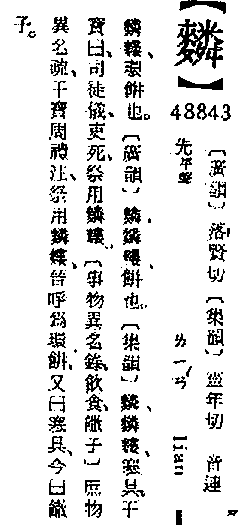 48843
〔廣韻〕落賢切〔集韻〕靈年切 音連
先平聲 ㄌㄧㄢ lian
環餅也。〔廣韻〕餅也。〔集韻〕寒具、于
寶曰、司徒儀、吏死、祭用〔事物異名錄、飲食、饊子〕庶物
異名疏、干寶周禮注、祭用晉呼爲環餅、又曰寒具、今曰饊
子。